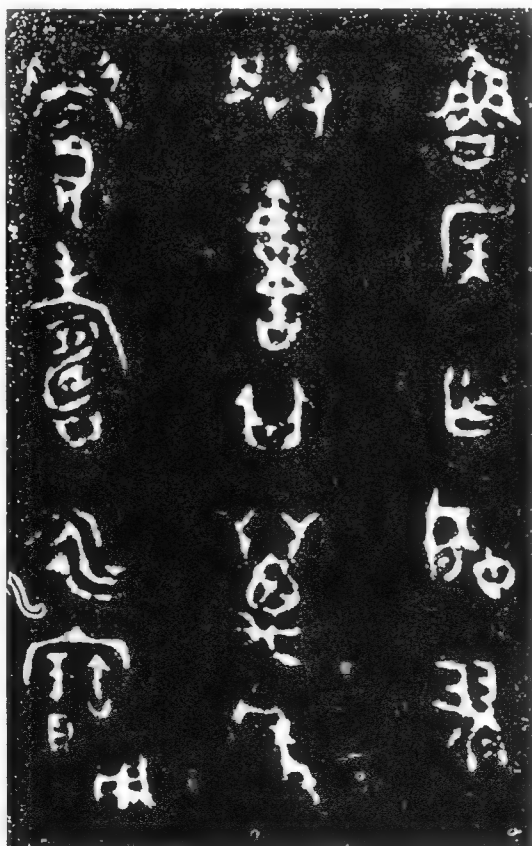 魯侯乍姬翏
朕簠其萬年
眉壽永寶用